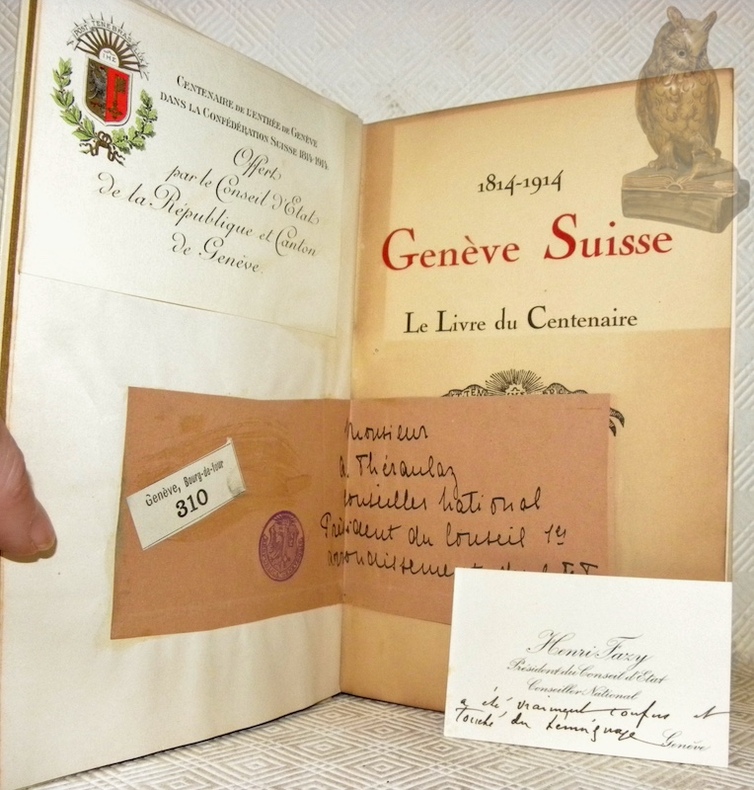 POST TENEBRAS LUX
IHΣ
CENTENAIRE DE L'ENTRÉE DE GENÈVE
DANS LA CONFÉDÉRATION SUISSE 1814-1914
Offert
par le Conseil d'Etat
de la République et Canton
de Genève.
1814-1914
Genève Suisse
Le Livre du Centenaire
Genève, Bourg-de-four
310
Monsieur
A. Théraulaz
Conseiller National
Président du Conseil 1er
arrondissement
Henri Fazy
Président du Conseil d'Etat
Conseiller National
a été vraiment confus et
touché du témoignage
Genève